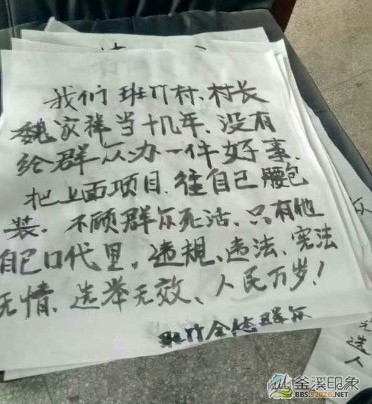 我们班竹村、村长
魏家祥当十几年、没有
给群众办一件好事、
把上面项目、往自己腰包
装。不顾群众死活、只有他
自己口代里。违规、违法、宪法
无情、选举无效、人民万岁!
班竹全体群众
选人
金溪印象